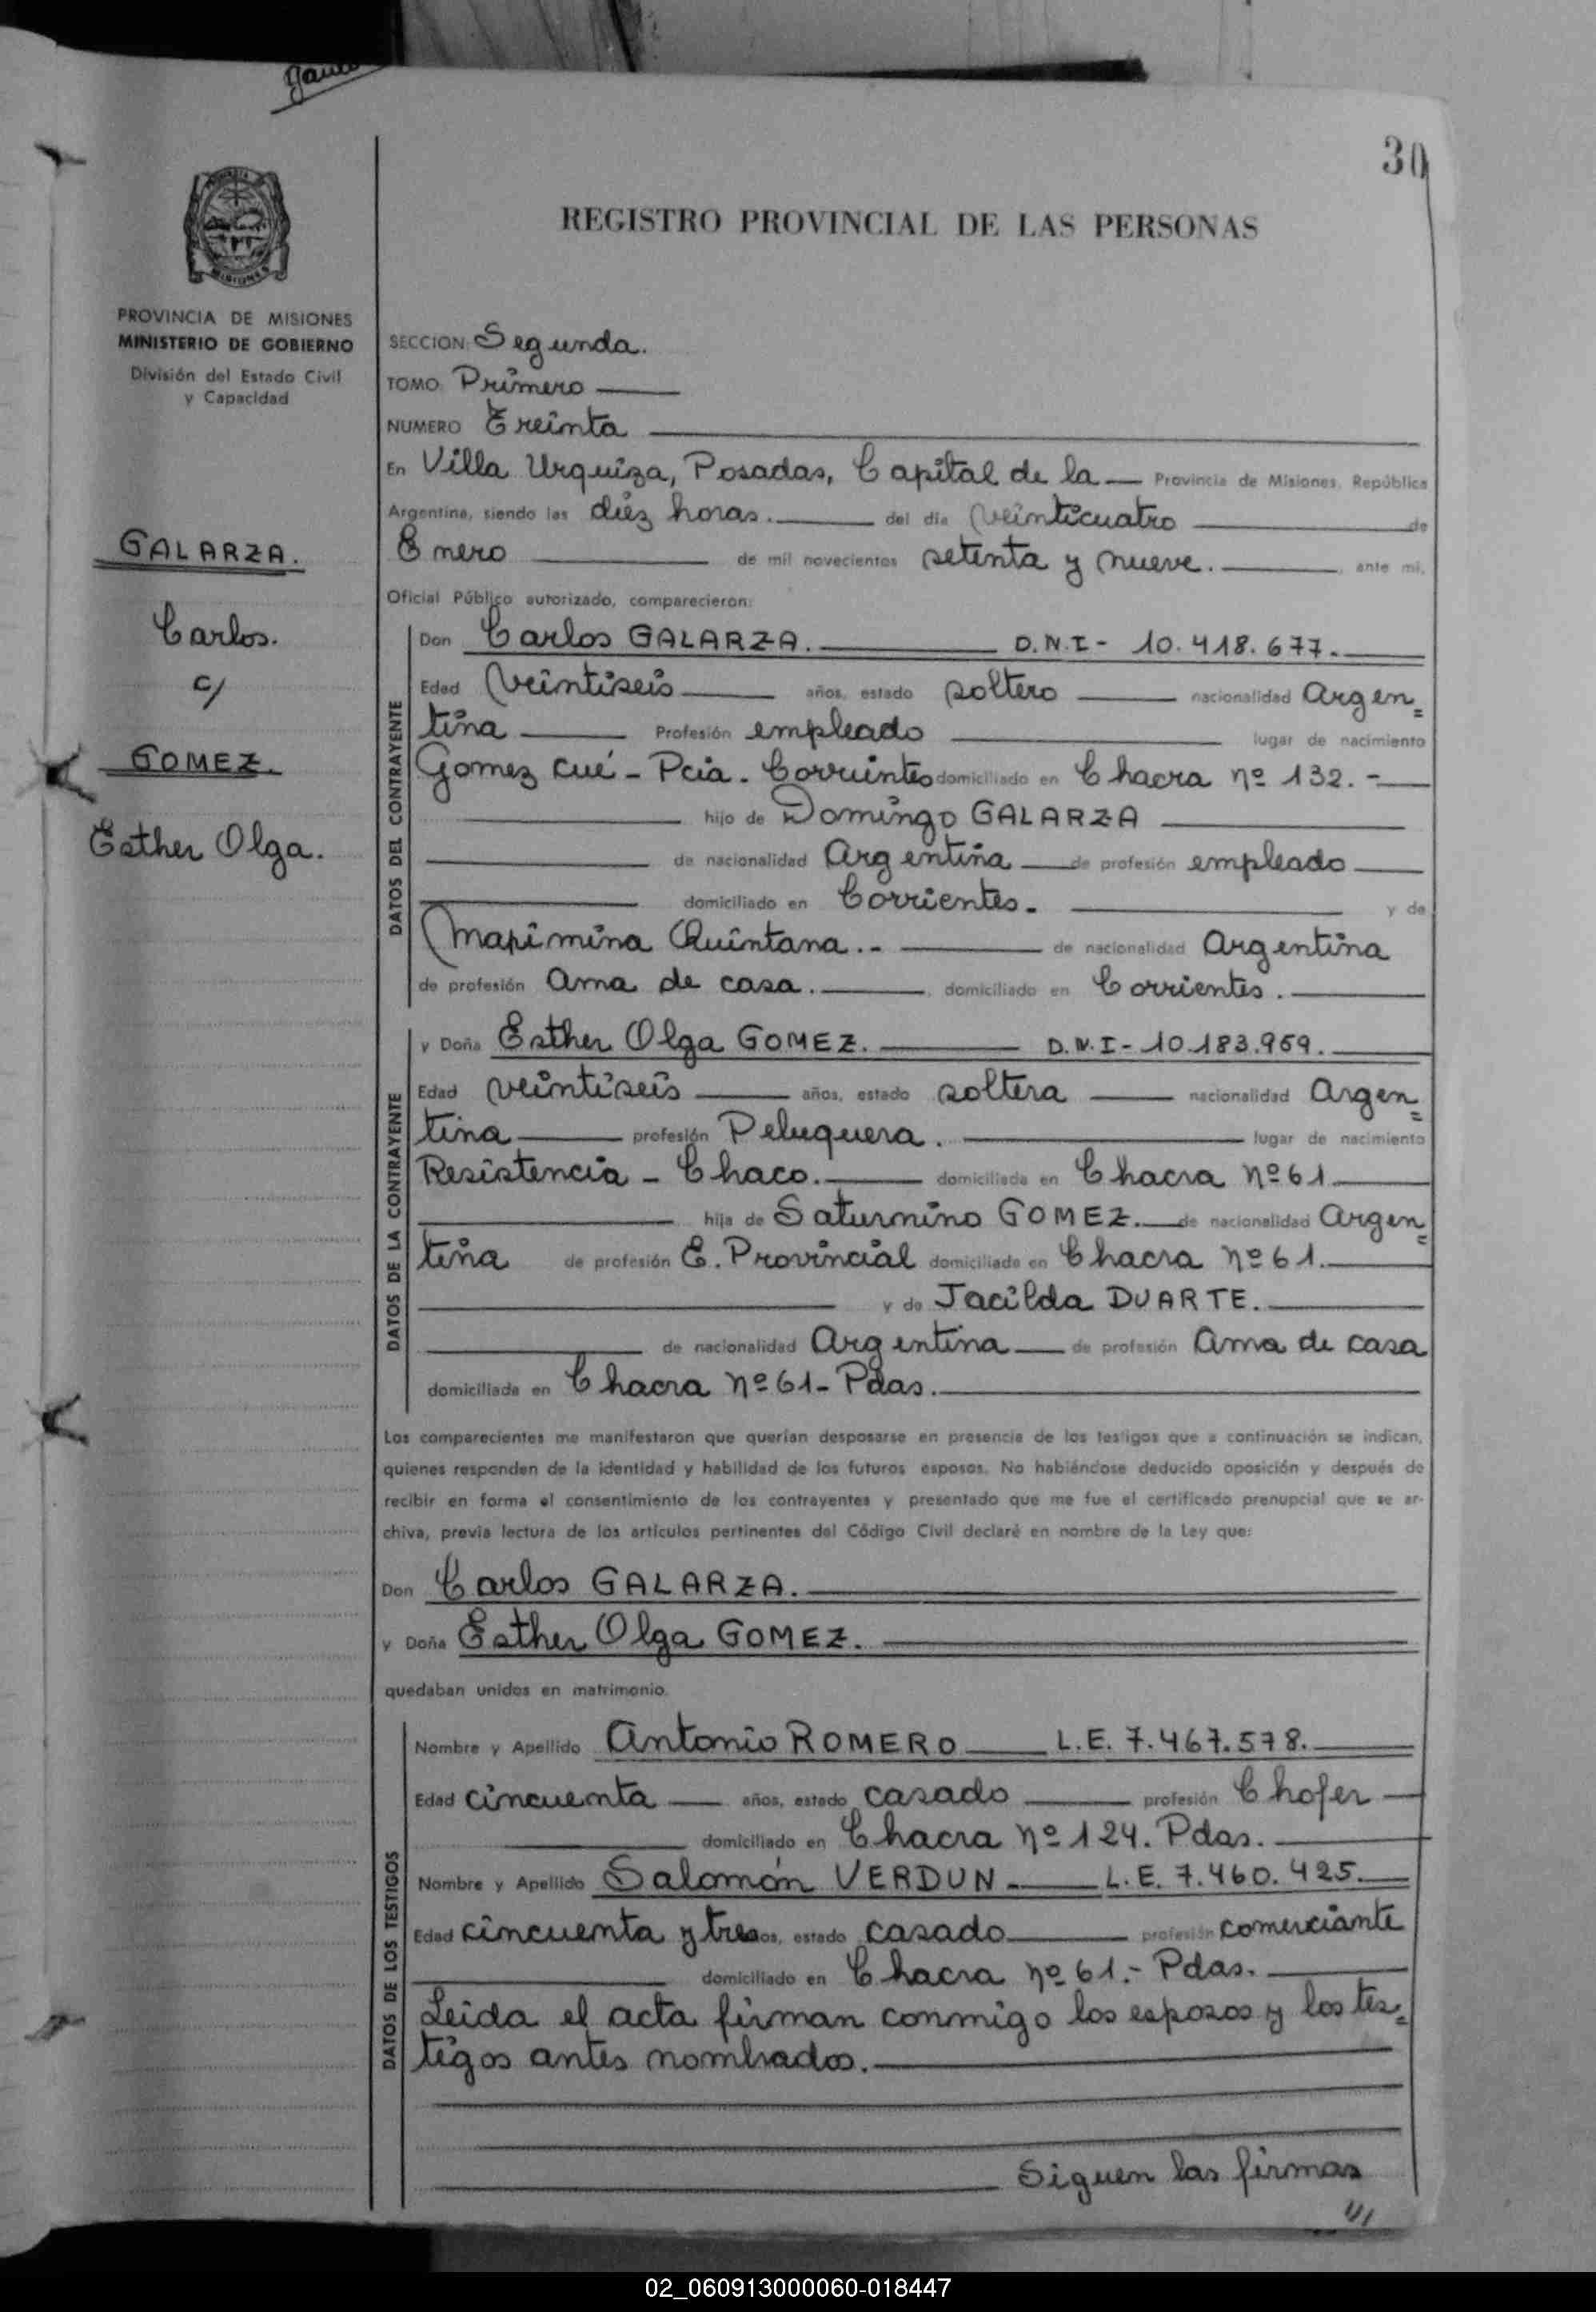 30
REGISTRO PROVINCIAL DE LAS PERSONAS
MISIONES
PROVINCIA DE MISIONES
MINISTERIO DE GOBIERNO
División del Estado Civil
y Capacidad
GALARZA.
Carlos.
c/
GOMEZ.
Esther Olga.
SECCION: Segunda.
TOMO: Primero
NUMERO Treinta
En Villa Urquiza, Posadas, Capital de la Provincia de Misiones, República
Argentina, siendo las diez horas. del día veinticuatro de
Enero de mil novecientos setenta y nueve. , ante mi,
Oficial Público autorizado, comparecieron:
DATOS DEL CONTRAYENTE
Don Carlos GALARZA. D.N.I- 10.418.677.
Edad veintiseis años, estado soltero nacionalidad Argen=
tina Profesión empleado lugar de nacimiento
Gomez cué - Pcia. Corrientes domiciliado en Chacra nº 132.-
hijo de Domingo GALARZA
de nacionalidad Argentina de profesión empleado
domiciliado en Corrientes. y de
Maximina Quintana.- de nacionalidad Argentina
de profesión Ama de casa. , domiciliado en Corrientes.
DATOS DE LA CONTRAYENTE
y Doña Esther Olga GOMEZ. D.N.I- 10.183.959.
Edad veintiseis años, estado soltera nacionalidad Argen=
tina profesión Peluquera. lugar de nacimiento
Resistencia - Chaco. domiciliada en Chacra nº 61
hija de Saturnino GOMEZ. de nacionalidad Argen=
tina de profesión E. Provincial domiciliado en Chacra nº 61.
y de Jacilda DUARTE.
de nacionalidad Argentina de profesión Ama de casa
domiciliada en Chacra nº 61- Pdas.
Los comparecientes me manifestaron que querían desposarse en presencia de los testigos que a continuación se indican,
quienes responden de la identidad y habilidad de los futuros esposos. No habiéndose deducido oposición y después de
recibir en forma el consentimiento de los contrayentes y presentado que me fue el certificado prenupcial que se ar-
chiva, previa lectura de los artículos pertinentes del Código Civil declaré en nombre de la Ley que:
Don Carlos GALARZA.
y Doña Esther Olga GOMEZ.
quedaban unidos en matrimonio.
DATOS DE LOS TESTIGOS
Nombre y Apellido Antonio ROMERO L.E. 7.467.578.
Edad cincuenta años, estado casado profesión Chofer
domiciliado en Chacra nº 124. Pdas.
Nombre y Apellido Salomón VERDUN. L.E. 7.460.425.
Edad cincuenta y tres os, estado casado profesión comerciante
domiciliado en Chacra nº 61.- Pdas.
Leida el acta firman conmigo los esposos y los tes=
tigos antes nombrados.
Siguen las firmas
///
02_060913000060-018447